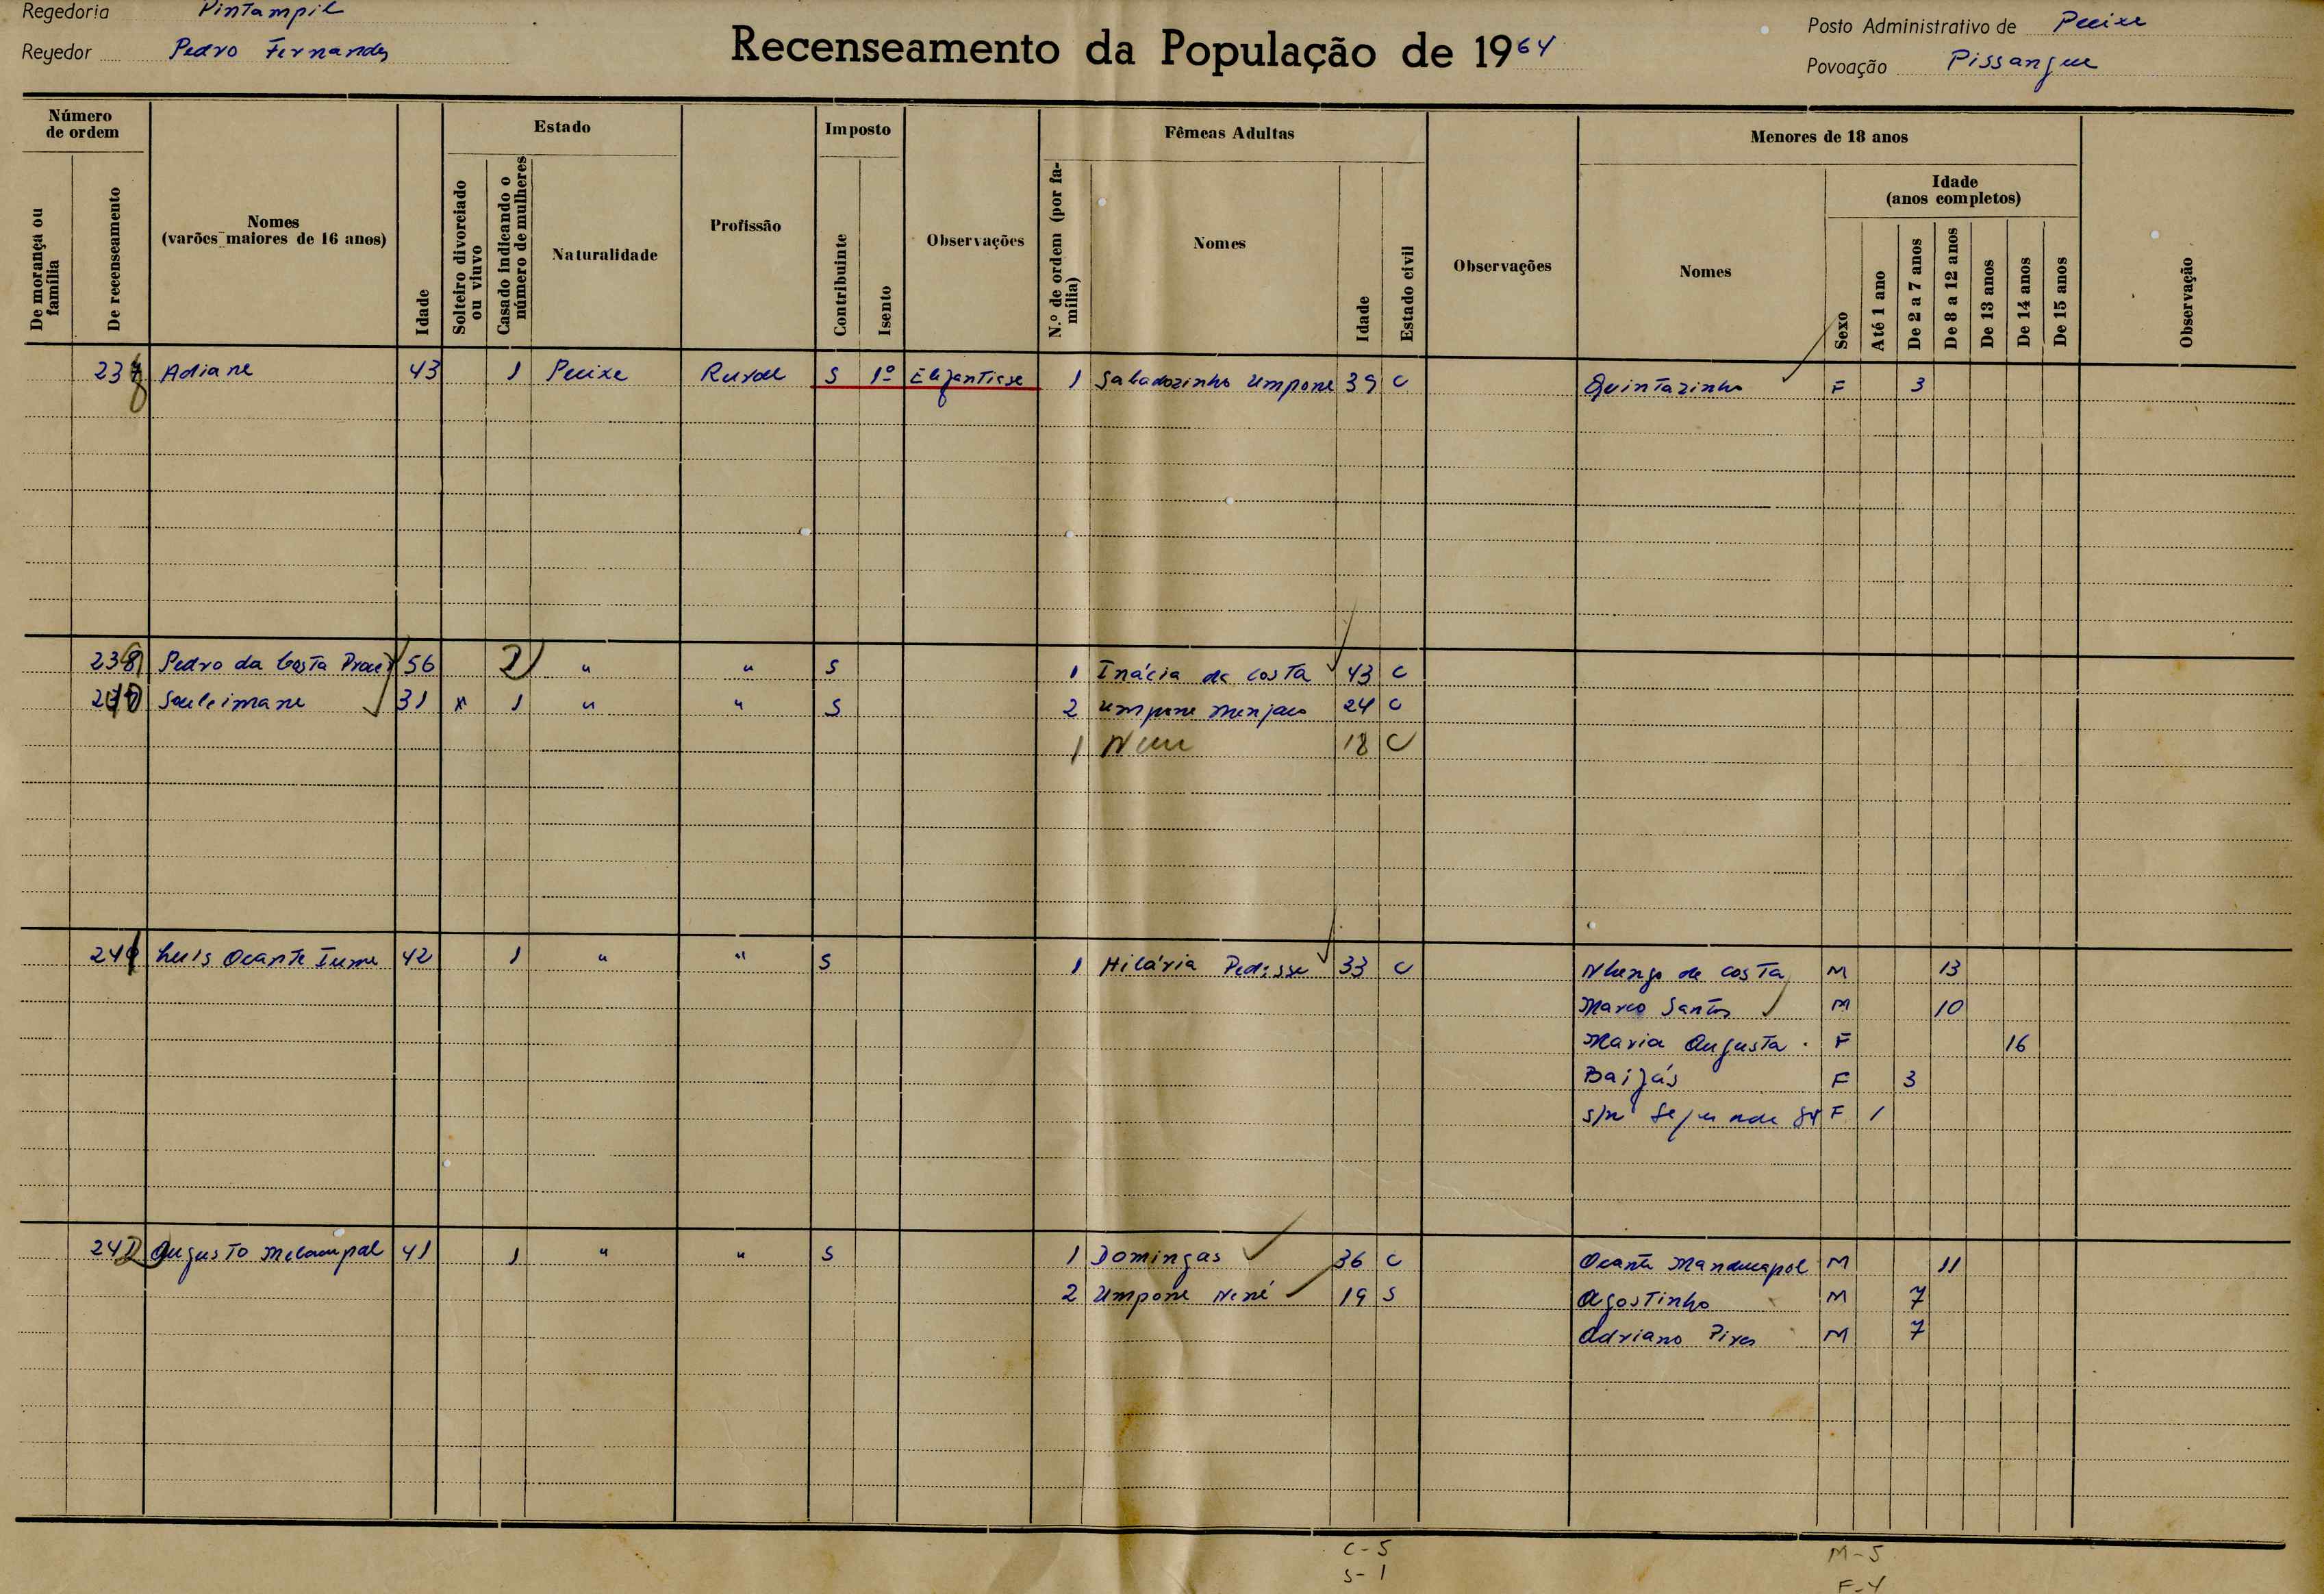 Regedoria Pintampil
Regedor Pedro Fernandes
Recenseamento da População de 1964
Posto Administrativo de Pecixe
Povoação Pissangue
Número de ordem
De morança ou família
De recenseamento
Nomes (varões maiores de 16 anos)
Idade
Estado
Solteiro divorciado ou viuvo
Casado indicando o número de mulheres
Naturalidade
Profissão
Imposto
Contribuinte
Isento
Observações
Fêmeas Adultas
N.º de ordem (por família)
Nomes
Idade
Estado civil
Observações
Menores de 18 anos
Nomes
Sexo
Idade (anos completos)
Até 1 ano
De 2 a 7 anos
De 8 a 12 anos
De 13 anos
De 14 anos
De 15 anos
Observação
Adiane 43 1 Pecixe Rural S 1º 1 Sabadozinho Umpone 39 C Quintazinho F 3
238 Pedro da Costa 56 2 " " S 1 Inácia da Costa 43 C
240 Souleimane 31 x 1 " " S 2 Umpone Menjaco 24 C
1 18 C
241 Luis Ocante Iume 42 1 " " S 1 Hilária Pedisse 33 C da Costa M 13
Marco Santos M 10
Maria Augusta F 16
Baijás F 3
s/n F 1
242 Augusto 41 1 " " S 1 Domingas 36 C Ocante Manducapol M 11
2 Umpone Nené 19 S Agostinho M 7
Adriano Pires M 7
C-5
S-1
M-5
F-4